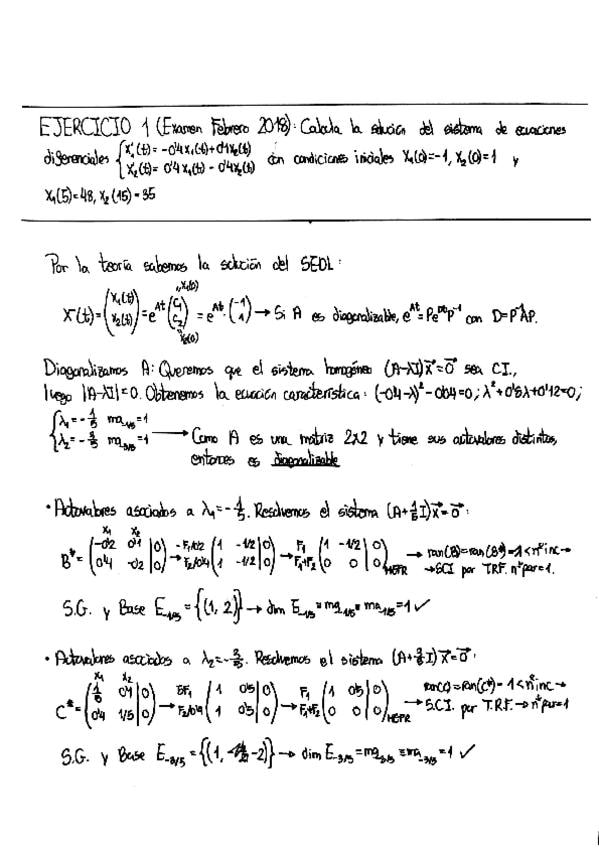 EJERCICIO 1 (Examen Febrero 2018): Calcula la solución del sistema de ecuaciones
diferenciales { x₁'(t) = -0'4x₁(t)+0'1x₂(t) con condiciones iniciales x₁(0)=-1, x₂(0)=1 y
x₂'(t) = 0'4x₁(t) - 0'4x₂(t)
x₁(5)=48, x₂(15)=35
Por la teoría sabemos la solución del SEDL:
X(t) = (x₁(t) x₂(t)) = e^{At} (C₁ C₂) = e^{At} · (-1 1) → Si A es diagonalizable, e^{At} = Pe^{Dt}P⁻¹ con D=P⁻¹AP.
Diagonalizamos A: Queremos que el sistema homogéneo (A-λI)x⃗=0⃗ sea C.I.,
luego |A-λI|=0. Obtenemos la ecuación característica: (-0'4-λ)²-0'04=0; λ²+0'8λ+0'12=0;
{ λ₁=-1/5 ma₋₁/₅=1
λ₂=-3/5 ma₋₃/₅=1 → Como A es una matriz 2x2 y tiene sus autovalores distintos,
entonces es diagonalizable
• Autovalores asociados a λ₁=-1/5. Resolvemos el sistema (A+1/5 I)x⃗=0⃗:
x₁ x₂
B* = (-0'2 0'1 | 0) -F₁/0'2 (1 -1/2 | 0) F₁ (1 -1/2 | 0) → ran(B)=ran(B*)=1<nº inc →
(0'4 -0'2 | 0) F₂/0'4 (1 -1/2 | 0) F₁+F₂ (0 0 | 0) → SCI por T.R.F. nº par=1.
S.G. y Base E₋₁/₅ = {(1, 2)} → dim E₋₁/₅ = mg₋₁/₅ = ma₋₁/₅ = 1 ✓
• Autovalores asociados a λ₂=-3/5. Resolvemos el sistema (A+3/5 I)x⃗=0⃗:
x₁ x₂
C* = (1/5 0'1 | 0) 5F₁ (1 0'5 | 0) F₁ (1 0'5 | 0) ran(C)=ran(C*)=1<nº inc →
(0'4 1/5 | 0) F₂/0'4 (1 0'5 | 0) F₁+F₂ (0 0 | 0) → S.C.I. por T.R.F. → nº par=1
S.G. y Base E₋₃/₅ = {(1, -2)} → dim E₋₃/₅ = mg₋₃/₅ = ma₋₃/₅ = 1 ✓